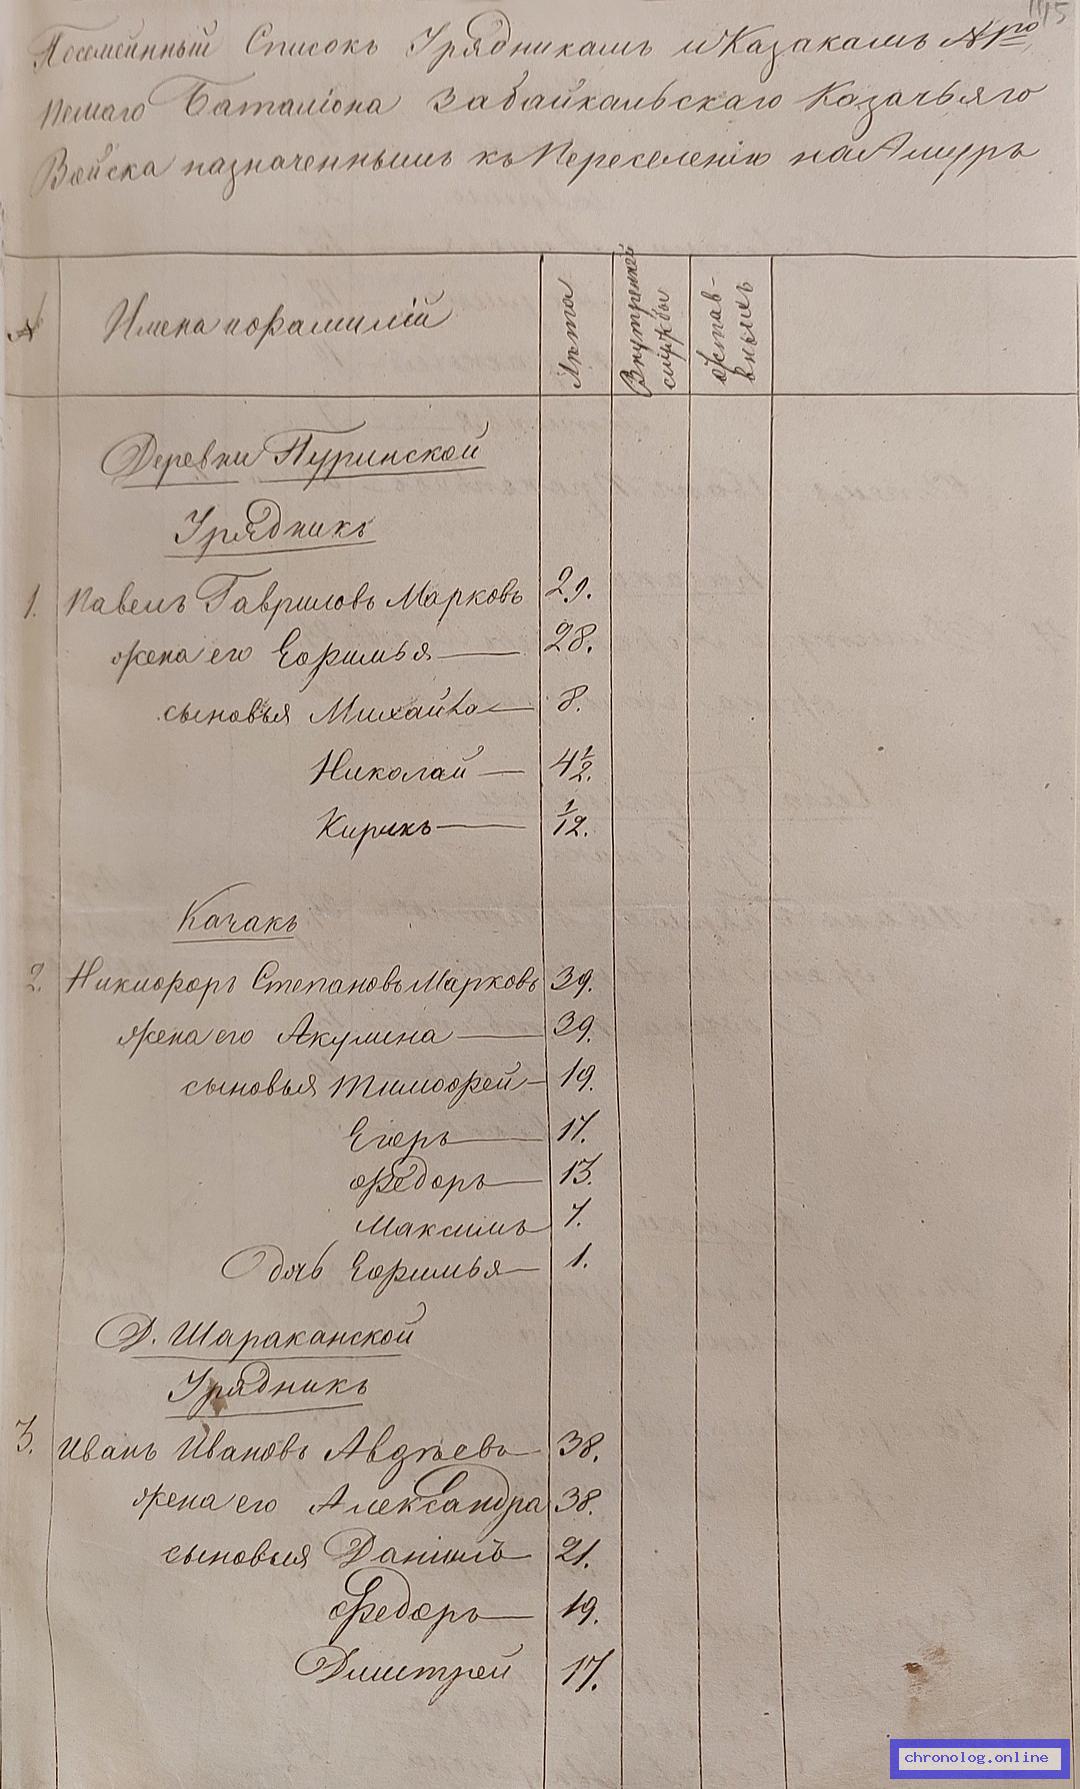 115
Посемейнный Списокъ Урядникамъ и Казакамъ №1го
Пешаго Баталіона Забайкальскаго Козачьяго
Войска назначеннымъ къ Переселенію на Амуръ
№
Имена и фамиліи
Лѣта
Внутренней службы
отставныхъ
Деревни Пуринской
Урядникъ
1. Павелъ Гавриловъ Марковъ 29.
жена его Ефимья 28.
сыновья Михайло 8.
Николай 4 1/2.
Кирикъ 1/12.
Казакъ
2. Никифоръ Степановъ Марковъ 39.
жена его Акулина 39.
сыновья Тимофей 19.
Егоръ 17.
Федоръ 13.
Максимъ 7.
Дочь Ефимья 1.
Д. Шараканской
Урядникъ
3. Иванъ Ивановъ Авдѣевъ 38.
жена его Александра 38.
сыновья Данилъ 21.
Федоръ 19.
Дмитрей 17.
chronolog.online